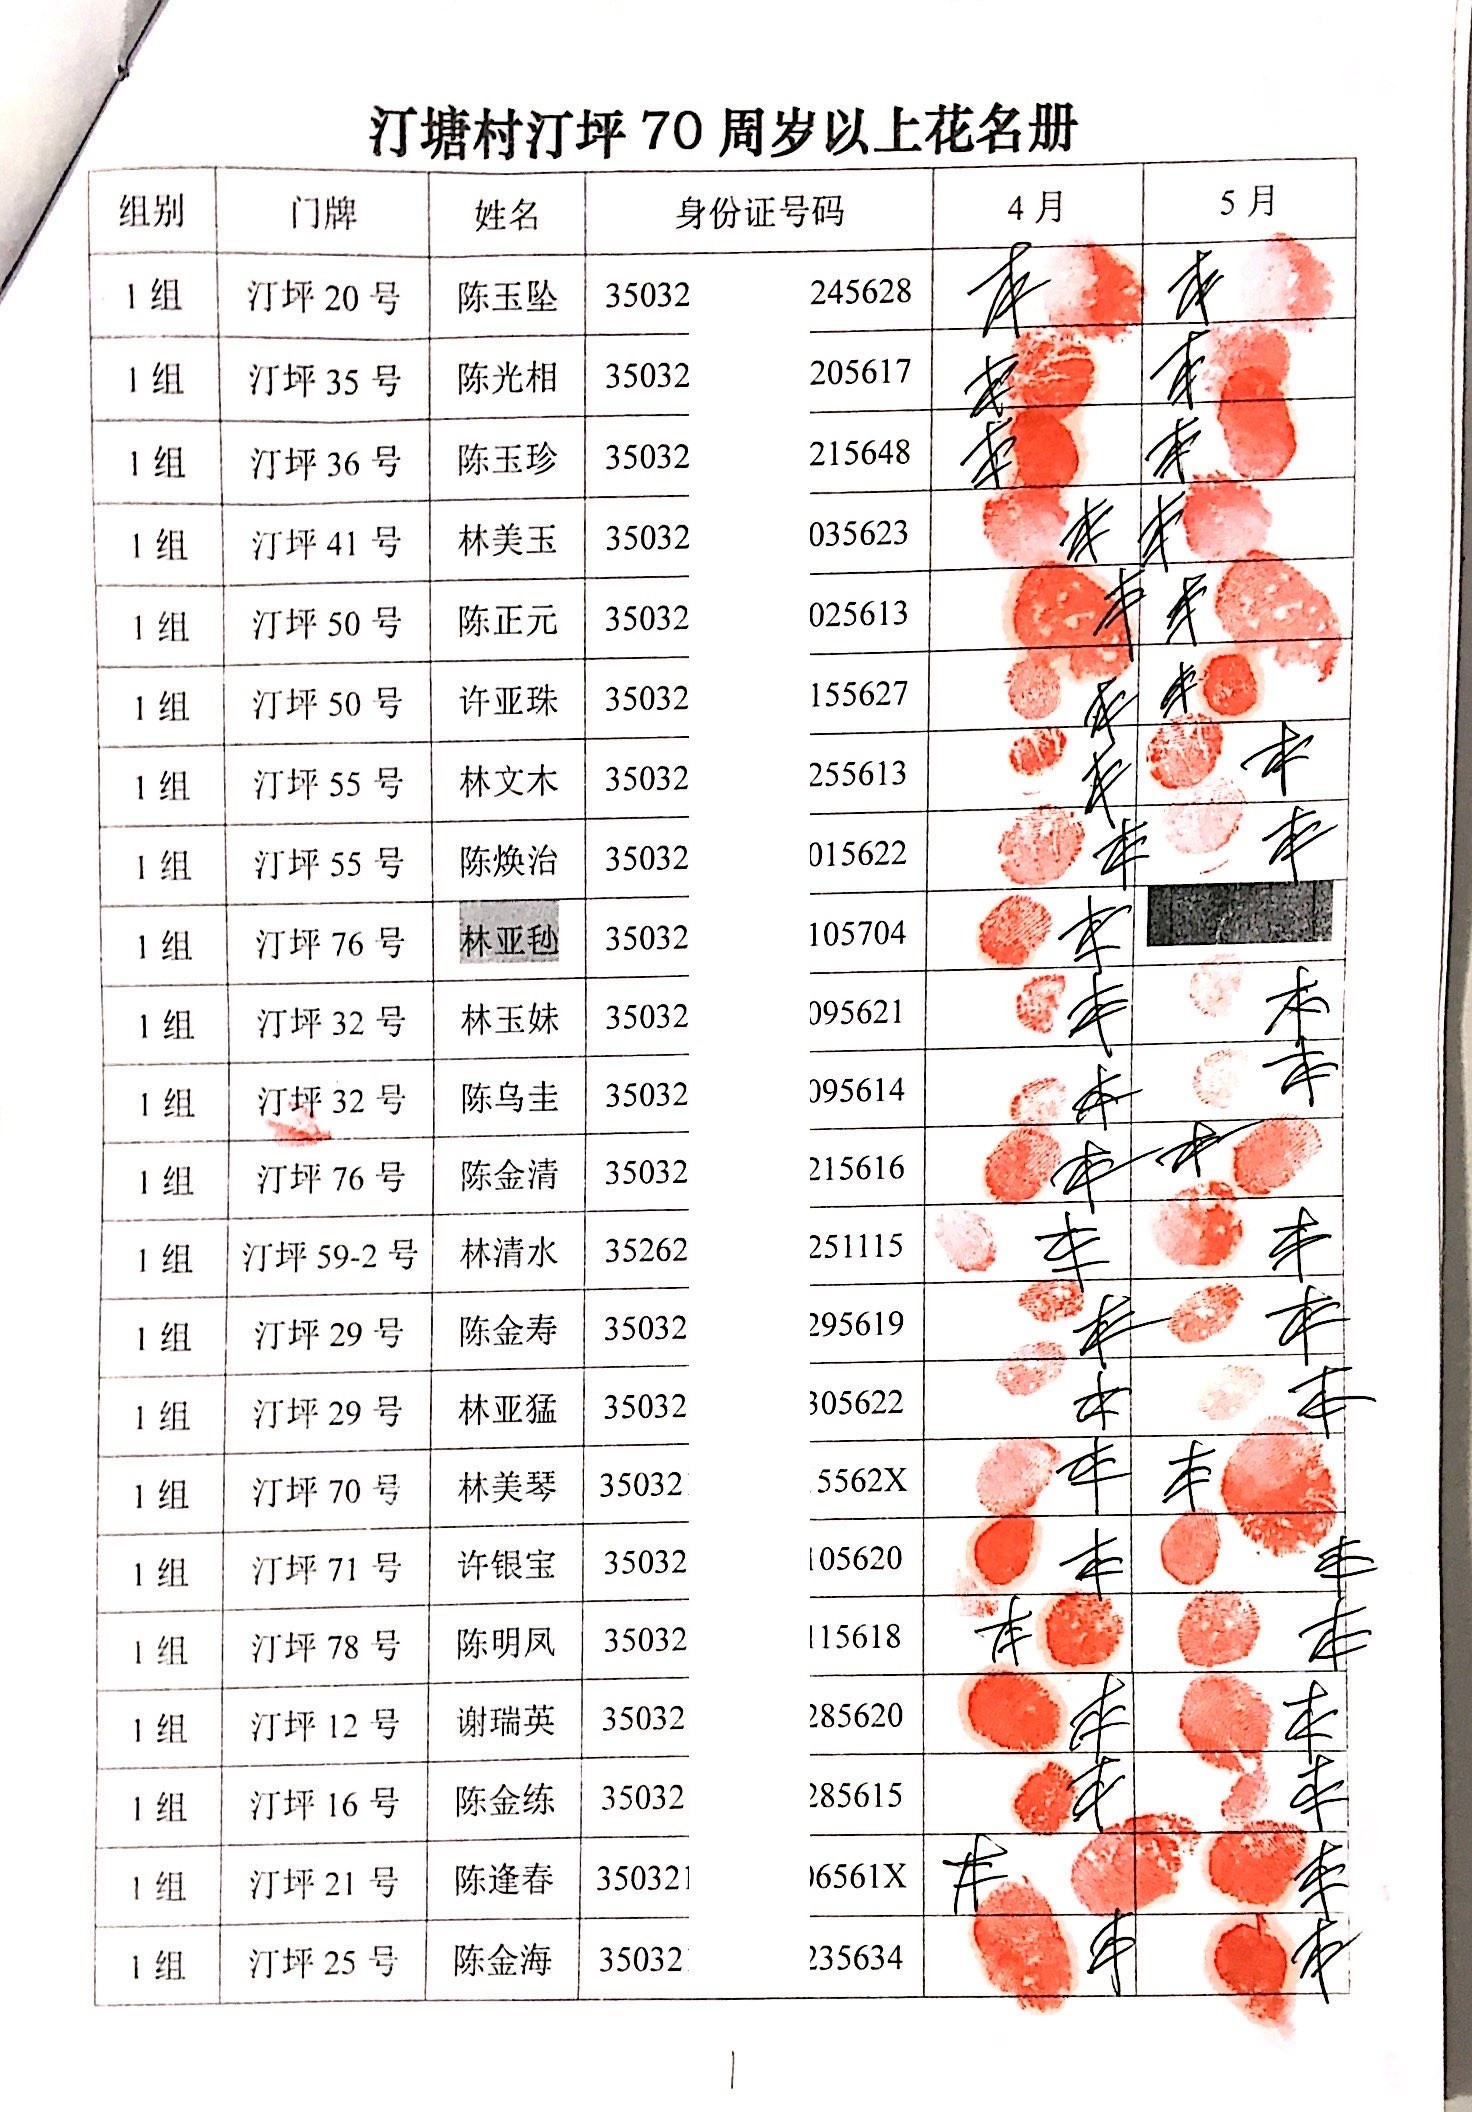 汀塘村汀坪70周岁以上花名册
组别 门牌 姓名 身份证号码 4月 5月
1组 汀坪20号 陈玉坠 35032 245628
1组 汀坪35号 陈光相 35032 205617
1组 汀坪36号 陈玉珍 35032 215648
1组 汀坪41号 林美玉 35032 035623
1组 汀坪50号 陈正元 35032 025613
1组 汀坪50号 许亚珠 35032 155627
1组 汀坪55号 林文木 35032 255613
1组 汀坪55号 陈焕治 35032 015622
1组 汀坪76号 林亚毜 35032 105704
1组 汀坪32号 林玉妹 35032 095621
1组 汀坪32号 陈乌圭 35032 095614
1组 汀坪76号 陈金清 35032 215616
1组 汀坪59-2号 林清水 35262 251115
1组 汀坪29号 陈金寿 35032 295619
1组 汀坪29号 林亚猛 35032 305622
1组 汀坪70号 林美琴 35032 5562X
1组 汀坪71号 许银宝 35032 105620
1组 汀坪78号 陈明凤 35032 115618
1组 汀坪12号 谢瑞英 35032 285620
1组 汀坪16号 陈金练 35032 285615
1组 汀坪21号 陈逢春 350321 06561X
1组 汀坪25号 陈金海 35032 235634
1